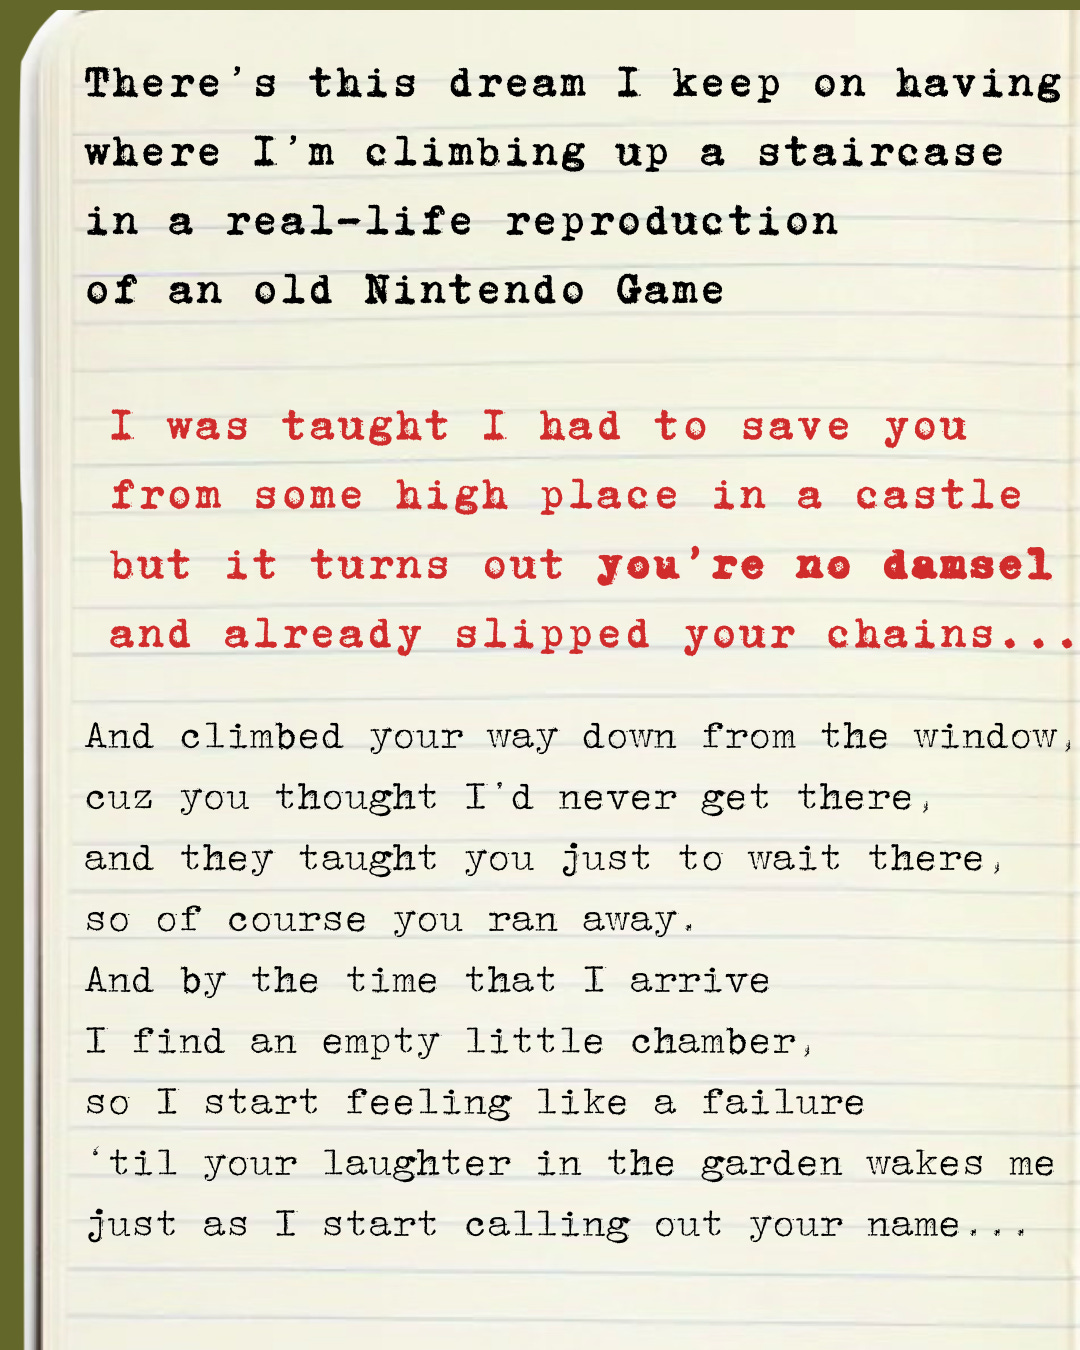 There's this dream I keep on having
where I'm climbing up a staircase
in a real-life reproduction
of an old Nintendo Game
I was taught I had to save you
from some high place in a castle
but it turns out you're no damsel
and already slipped your chains...
And climbed your way down from the window,
cuz you thought I'd never get there,
and they taught you just to wait there,
so of course you ran away.
And by the time that I arrive
I find an empty little chamber,
so I start feeling like a failure
‘til your laughter in the garden wakes me
just as I start calling out your name...